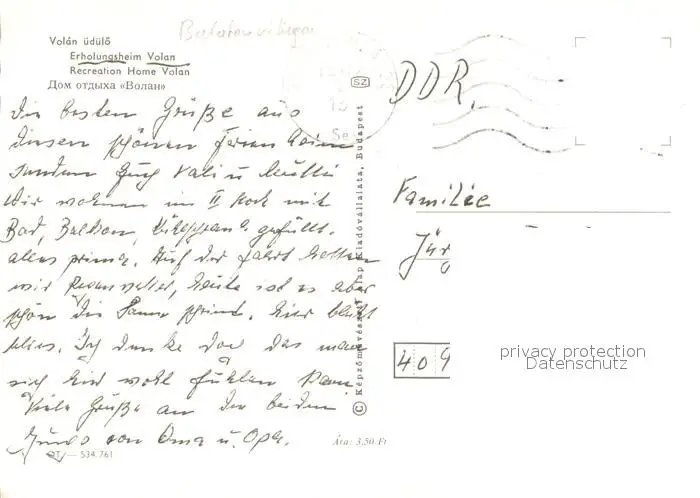 Balatonvilágos
Volán üdülő
Erholungsheim Volan
Recreation Home Volan
Дом отдыха «Волан»
Die besten Grüße aus
diesem schönen Ferienheim
senden Euch Vati u. Mutti
Wir wohnen im II Stock mit
Bad, Balkon, Kühlschrank gefüllt.
alles prima. Auf der Fahrt hatten
wir Regenwetter, heute ist es aber
schön die Sonne scheint. Hier blüht
alles. Ich denke doch das man
sich hier wohl fühlen kann
Viele Grüße an die beiden
Jungs von Oma u. Opa.
OT — 534.761
Ára: 3,50 Ft
SZ
© Képzőművészeti Alap Kiadóvállalata, Budapest
DDR,
Familie
Jür
409
privacy protection
Datenschutz